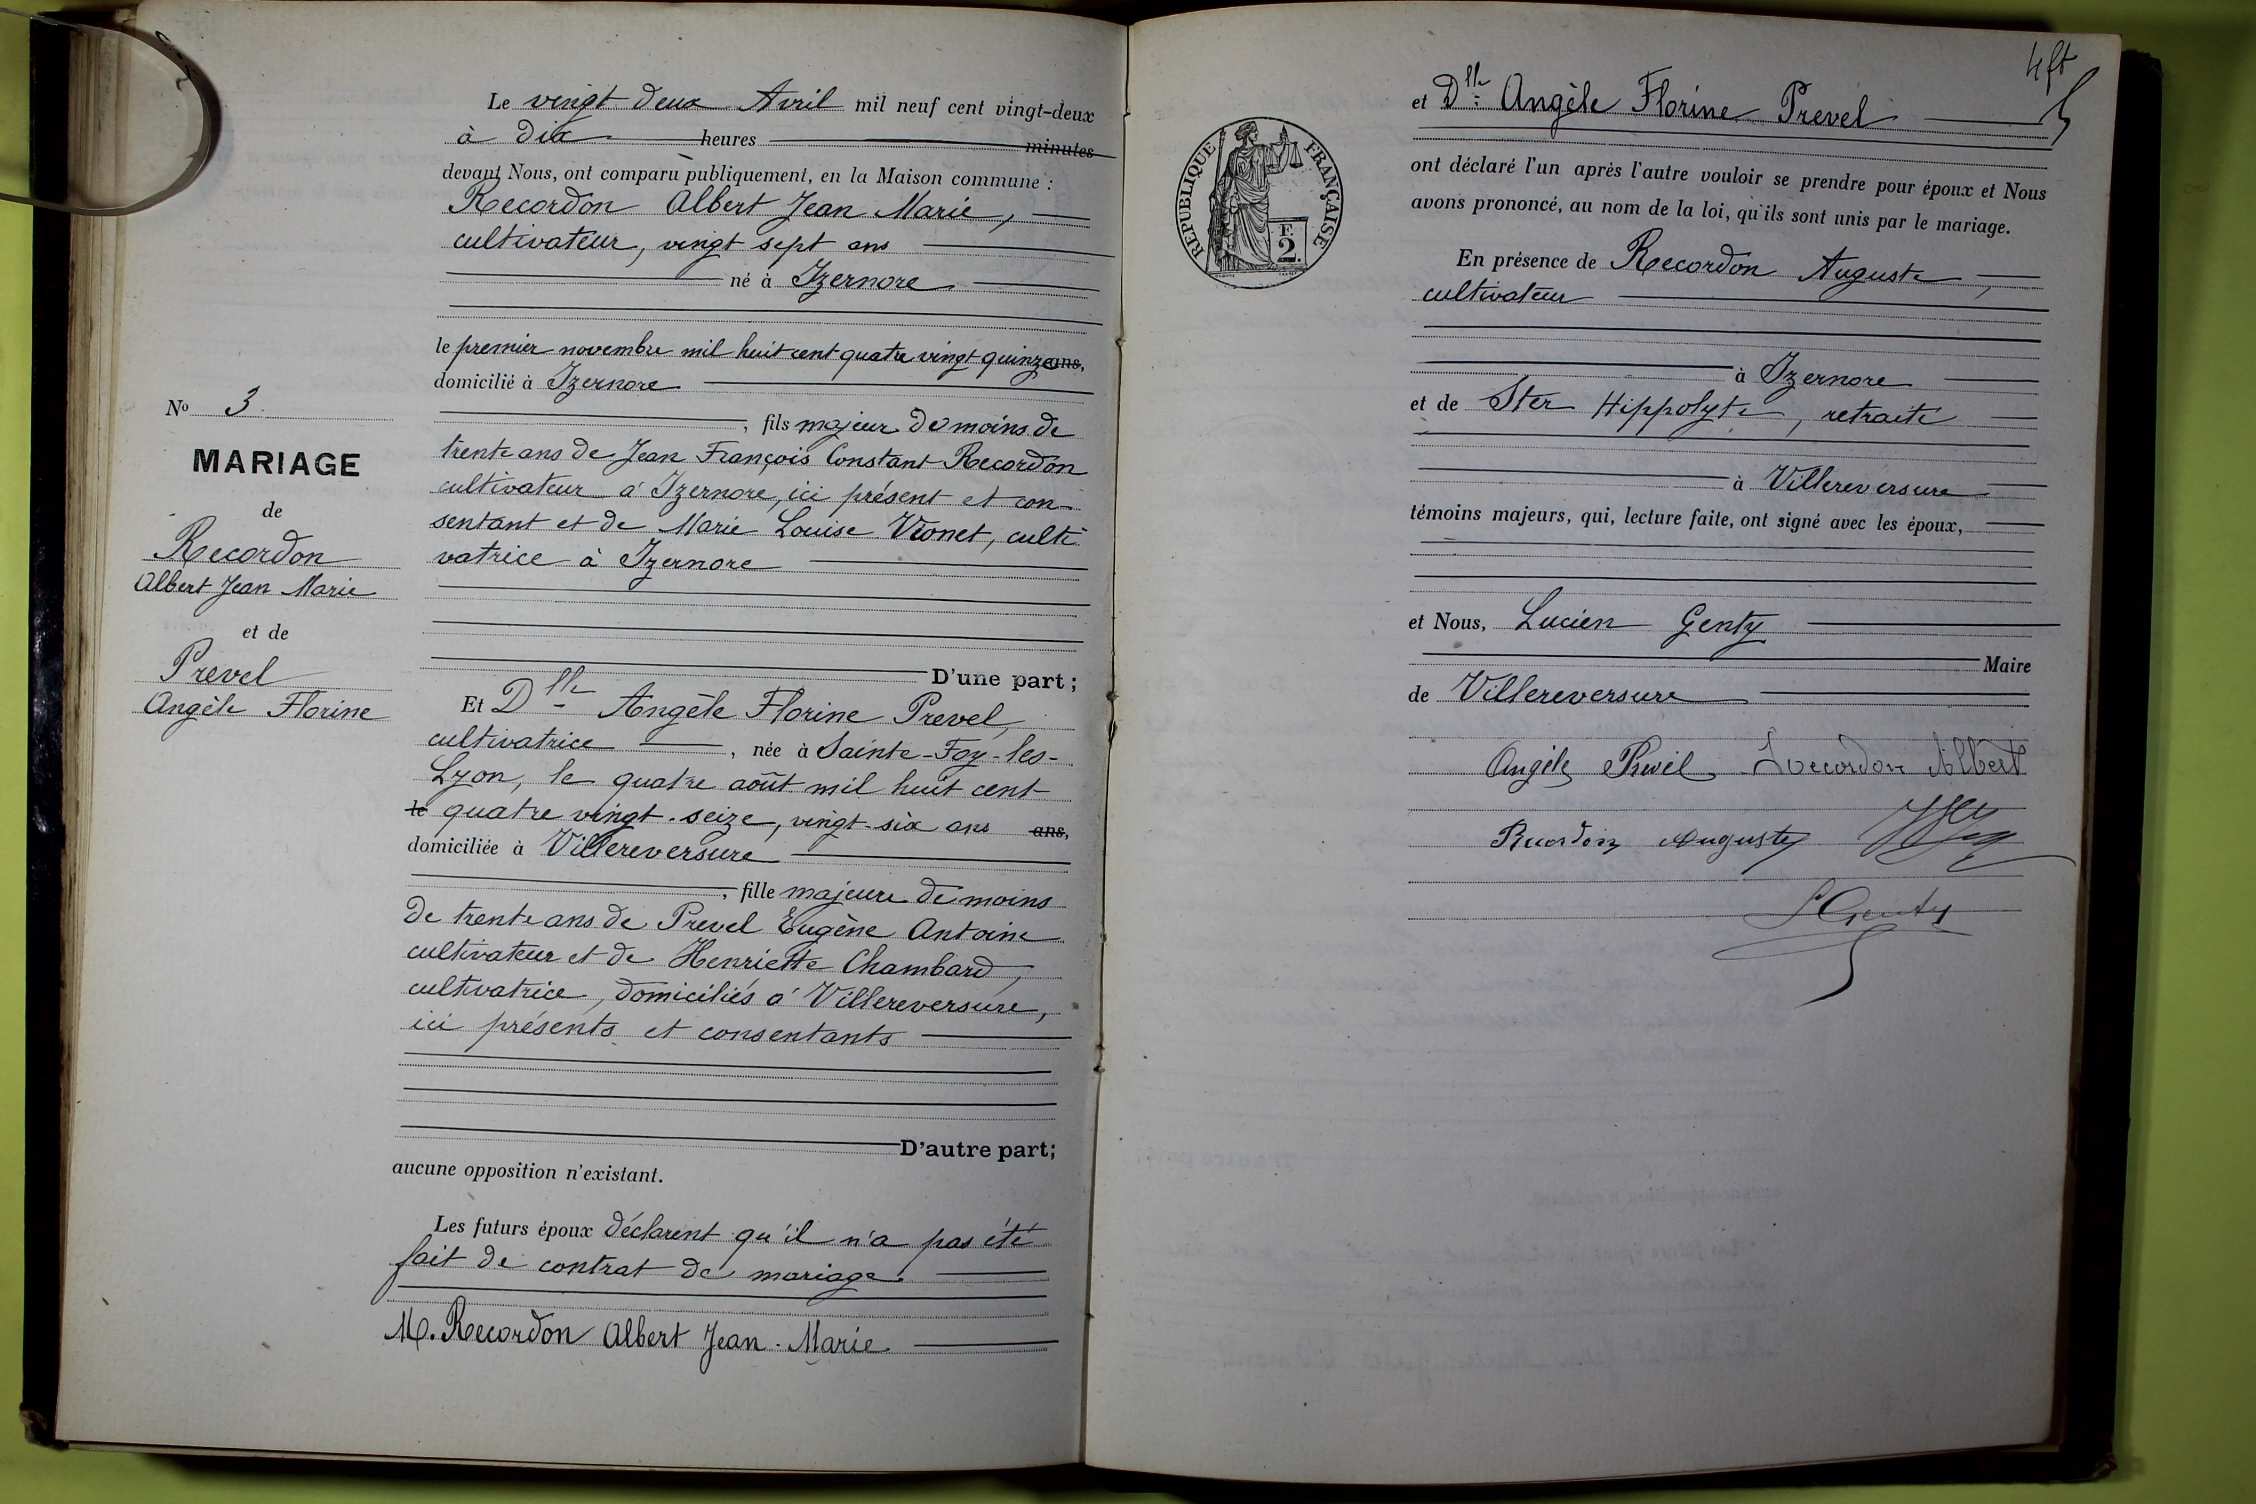 Le vingt deux Avril mil neuf cent vingt-deux
à dix heures minutes
devant Nous, ont comparu publiquement, en la Maison commune :
Recordon Albert Jean Marie,
cultivateur, vingt sept ans
né à Izernore
le premier novembre mil huit cent quatre vingt quinze ans,
domicilié à Izernore
, fils majeur de moins de
trente ans de Jean François Constant Recordon
cultivateur à Izernore, ici présent et con-
sentant et de Marie Louise Vionet, culti
vatrice à Izernore
D'une part ;
No 3
MARIAGE
de
Recordon
Albert Jean Marie
et de
Prevel
Angèle Florine
Et Dlle Angèle Florine Prevel,
cultivatrice , née à Sainte-Foy-les-
Lyon, le quatre août mil huit cent
le quatre vingt-seize, vingt-six ans ans,
domiciliée à Villereversure
, fille majeure de moins
de trente ans de Prevel Eugène Antoine
cultivateur et de Henriette Chambard,
cultivatrice, domiciliés à Villereversure,
ici présents et consentants
D'autre part;
aucune opposition n'existant.
Les futurs époux déclarent qu'il n'a pas été
fait de contrat de mariage
M. Recordon Albert Jean-Marie
RÉPUBLIQUE FRANÇAISE
F.
2.
et Dlle Angèle Florine Prevel
ont déclaré l'un après l'autre vouloir se prendre pour époux et Nous
avons prononcé, au nom de la loi, qu'ils sont unis par le mariage.
En présence de Recordon Auguste,
cultivateur
à Izernore
et de Ster Hippolyte, retraité
à Villereversure
témoins majeurs, qui, lecture faite, ont signé avec les époux,
et Nous, Lucien Genty
Maire
de Villereversure
Angèle Prevel Recordon Albert
Recordon Auguste
L Genty